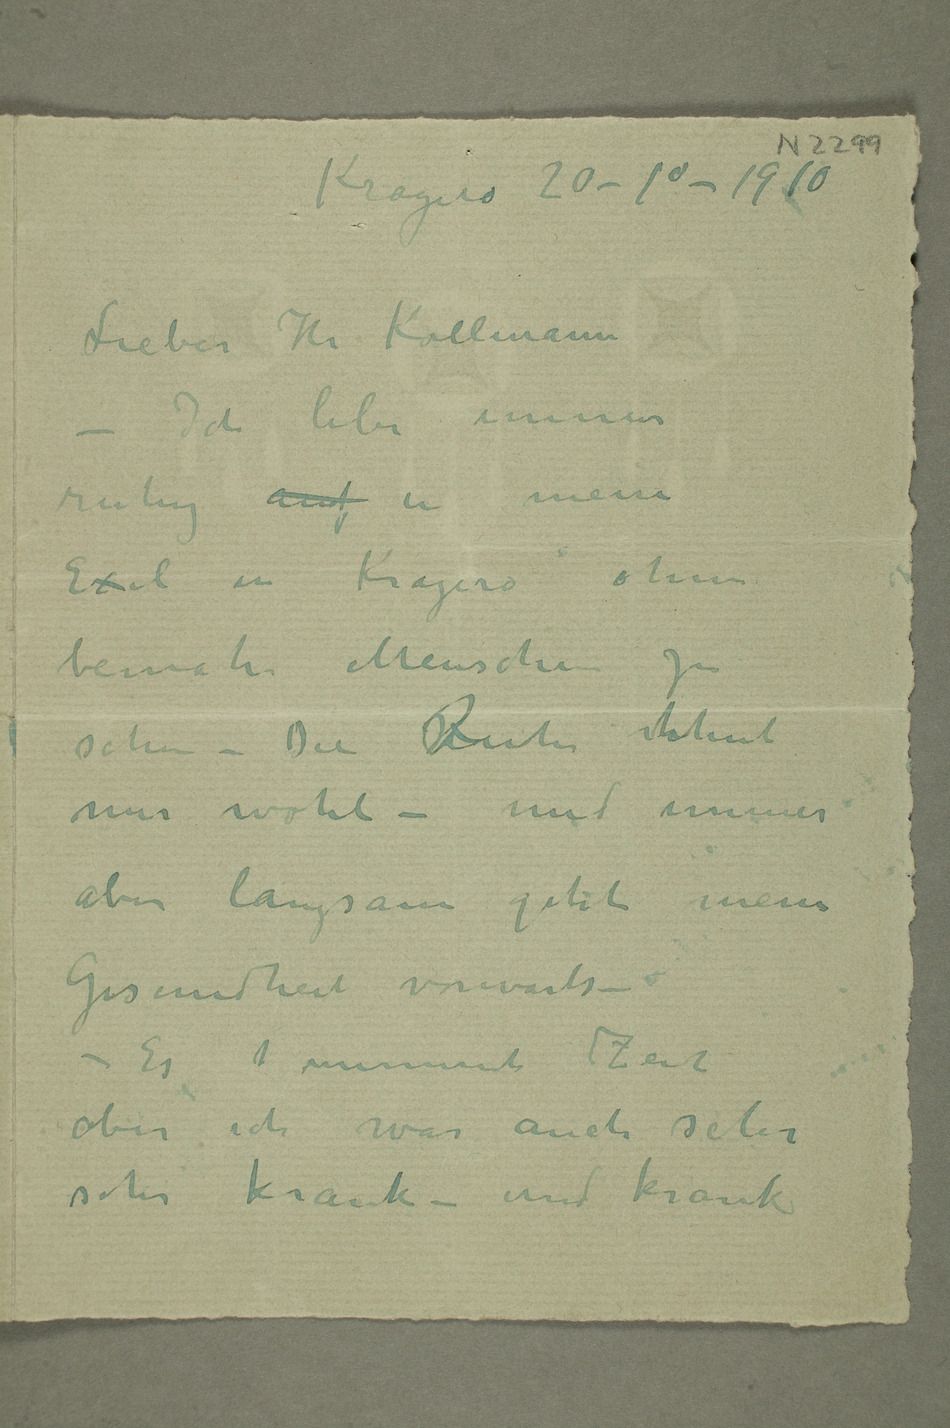 N 2299
Kragerø 20 – 10 – 1910
Lieber Hr Kollmann
– Ich lebe immer
ruhig auf in mein
Exil in Kragerø ohne
beinahe Menschen zu
sehen – Die Ruhe thut
mir wohl – und immer
aber langsam geht meine
Gesundheit vorwarts –
– Es nimmt Zeit
aber ich war auch sehr
sehr krank – und krank